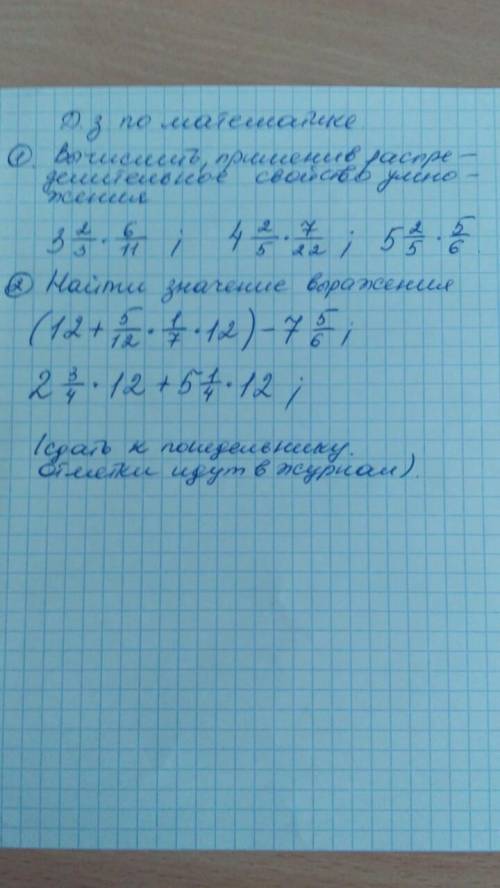 Д.з по математике
① Вычислить, применив распре-
делительное свойство умно-
жения
3 2/3 · 6/11 ; 4 2/5 · 7/22 ; 5 2/5 · 5/6
② Найти значение выражения
(12 + 5/12 · 1/7 · 12) - 7 5/6 ;
2 3/4 · 12 + 5 1/4 · 12 ;
(сдать к понедельнику.
Отметки идут в журнал)